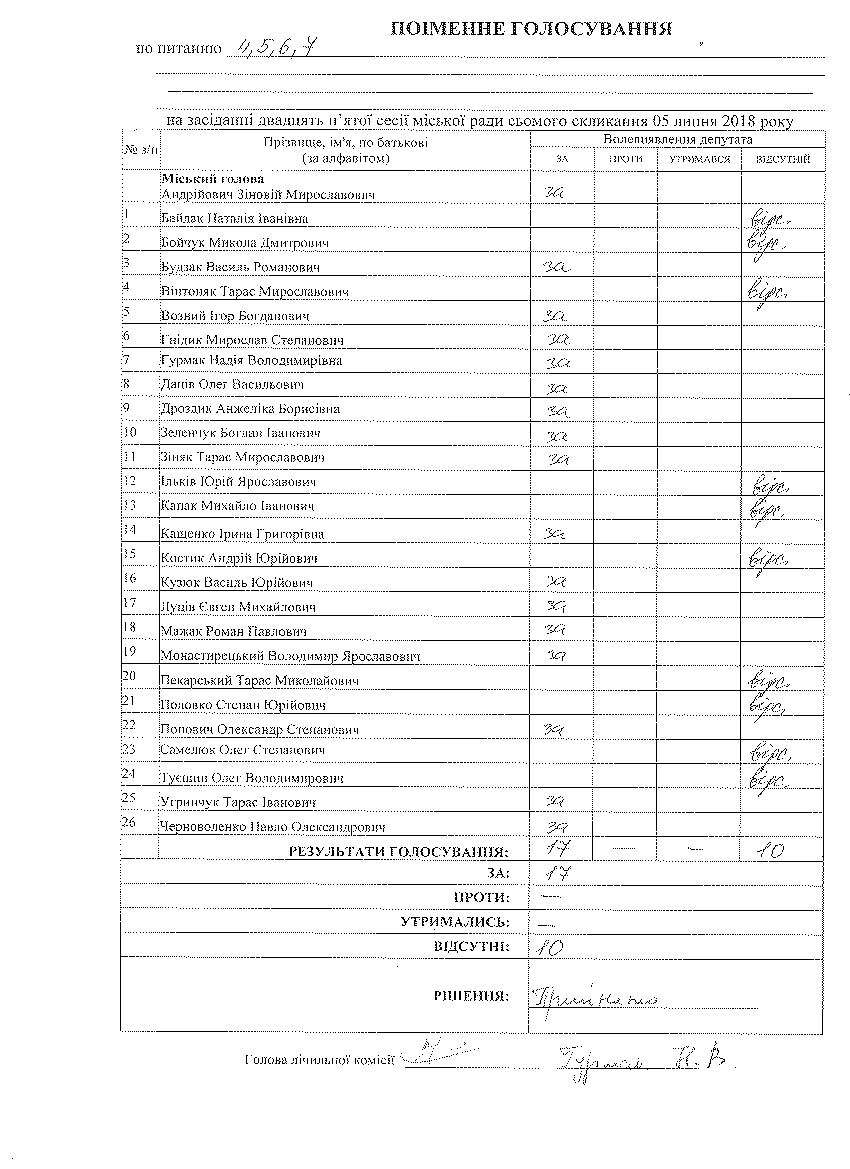 ПОІМЕННЕ ГОЛОСУВАННЯ
по питанню 4,5,6,7
на засіданні двадцять п'ятої сесії міської ради сьомого скликання 05 липня 2018 року
№ з/п Прізвище, ім'я, по батькові (за алфавітом) Волевиявлення депутата
ЗА ПРОТИ УТРИМАВСЯ ВІДСУТНІЙ
Міський голова
Андрійович Зіновій Мирославович за
1 Байдак Наталія Іванівна відс.
2 Бойчук Микола Дмитрович відс.
3 Будзак Василь Романович за
4 Вінтоняк Тарас Мирославович відс.
5 Возний Ігор Богданович за
6 Гнідик Мирослав Степанович за
7 Гурмак Надія Володимирівна за
8 Даців Олег Васильович за
9 Дроздик Анжеліка Борисівна за
10 Зеленчук Богдан Іванович за
11 Зіняк Тарас Мирославович за
12 Ільків Юрій Ярославович відс.
13 Капак Михайло Іванович відс.
14 Кащенко Ірина Григорівна за
15 Костик Андрій Юрійович відс.
16 Кузюк Василь Юрійович за
17 Луців Євген Михайлович за
18 Мажак Роман Павлович за
19 Монастирецький Володимир Ярославович за
20 Пекарський Тарас Миколайович відс.
21 Половко Степан Юрійович відс.
22 Попович Олександр Степанович за
23 Самелюк Олег Степанович відс.
24 Туєшин Олег Володимирович відс.
25 Угринчук Тарас Іванович за
26 Черноволенко Павло Олександрович за
РЕЗУЛЬТАТИ ГОЛОСУВАННЯ: 17 — — 10
ЗА: 17
ПРОТИ: —
УТРИМАЛИСЬ: —
ВІДСУТНІ: 10
РІШЕННЯ: Прийнято
Голова лічильної комісії Гурмак Н.В